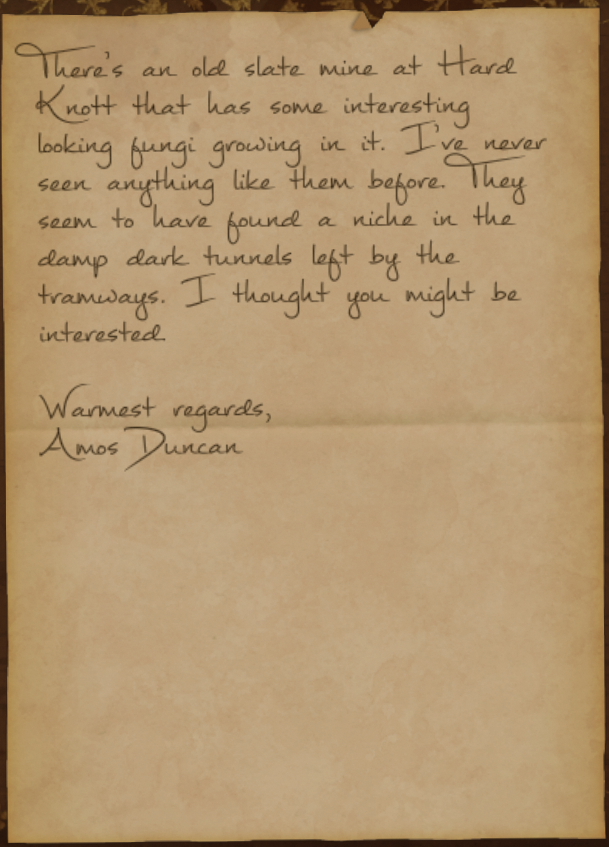 There's an old slate mine at Hard
Knott that has some interesting
looking fungi growing in it. I've never
seen anything like them before. They
seem to have found a niche in the
damp dark tunnels left by the
tramways. I thought you might be
interested.
Warmest regards,
Amos Duncan